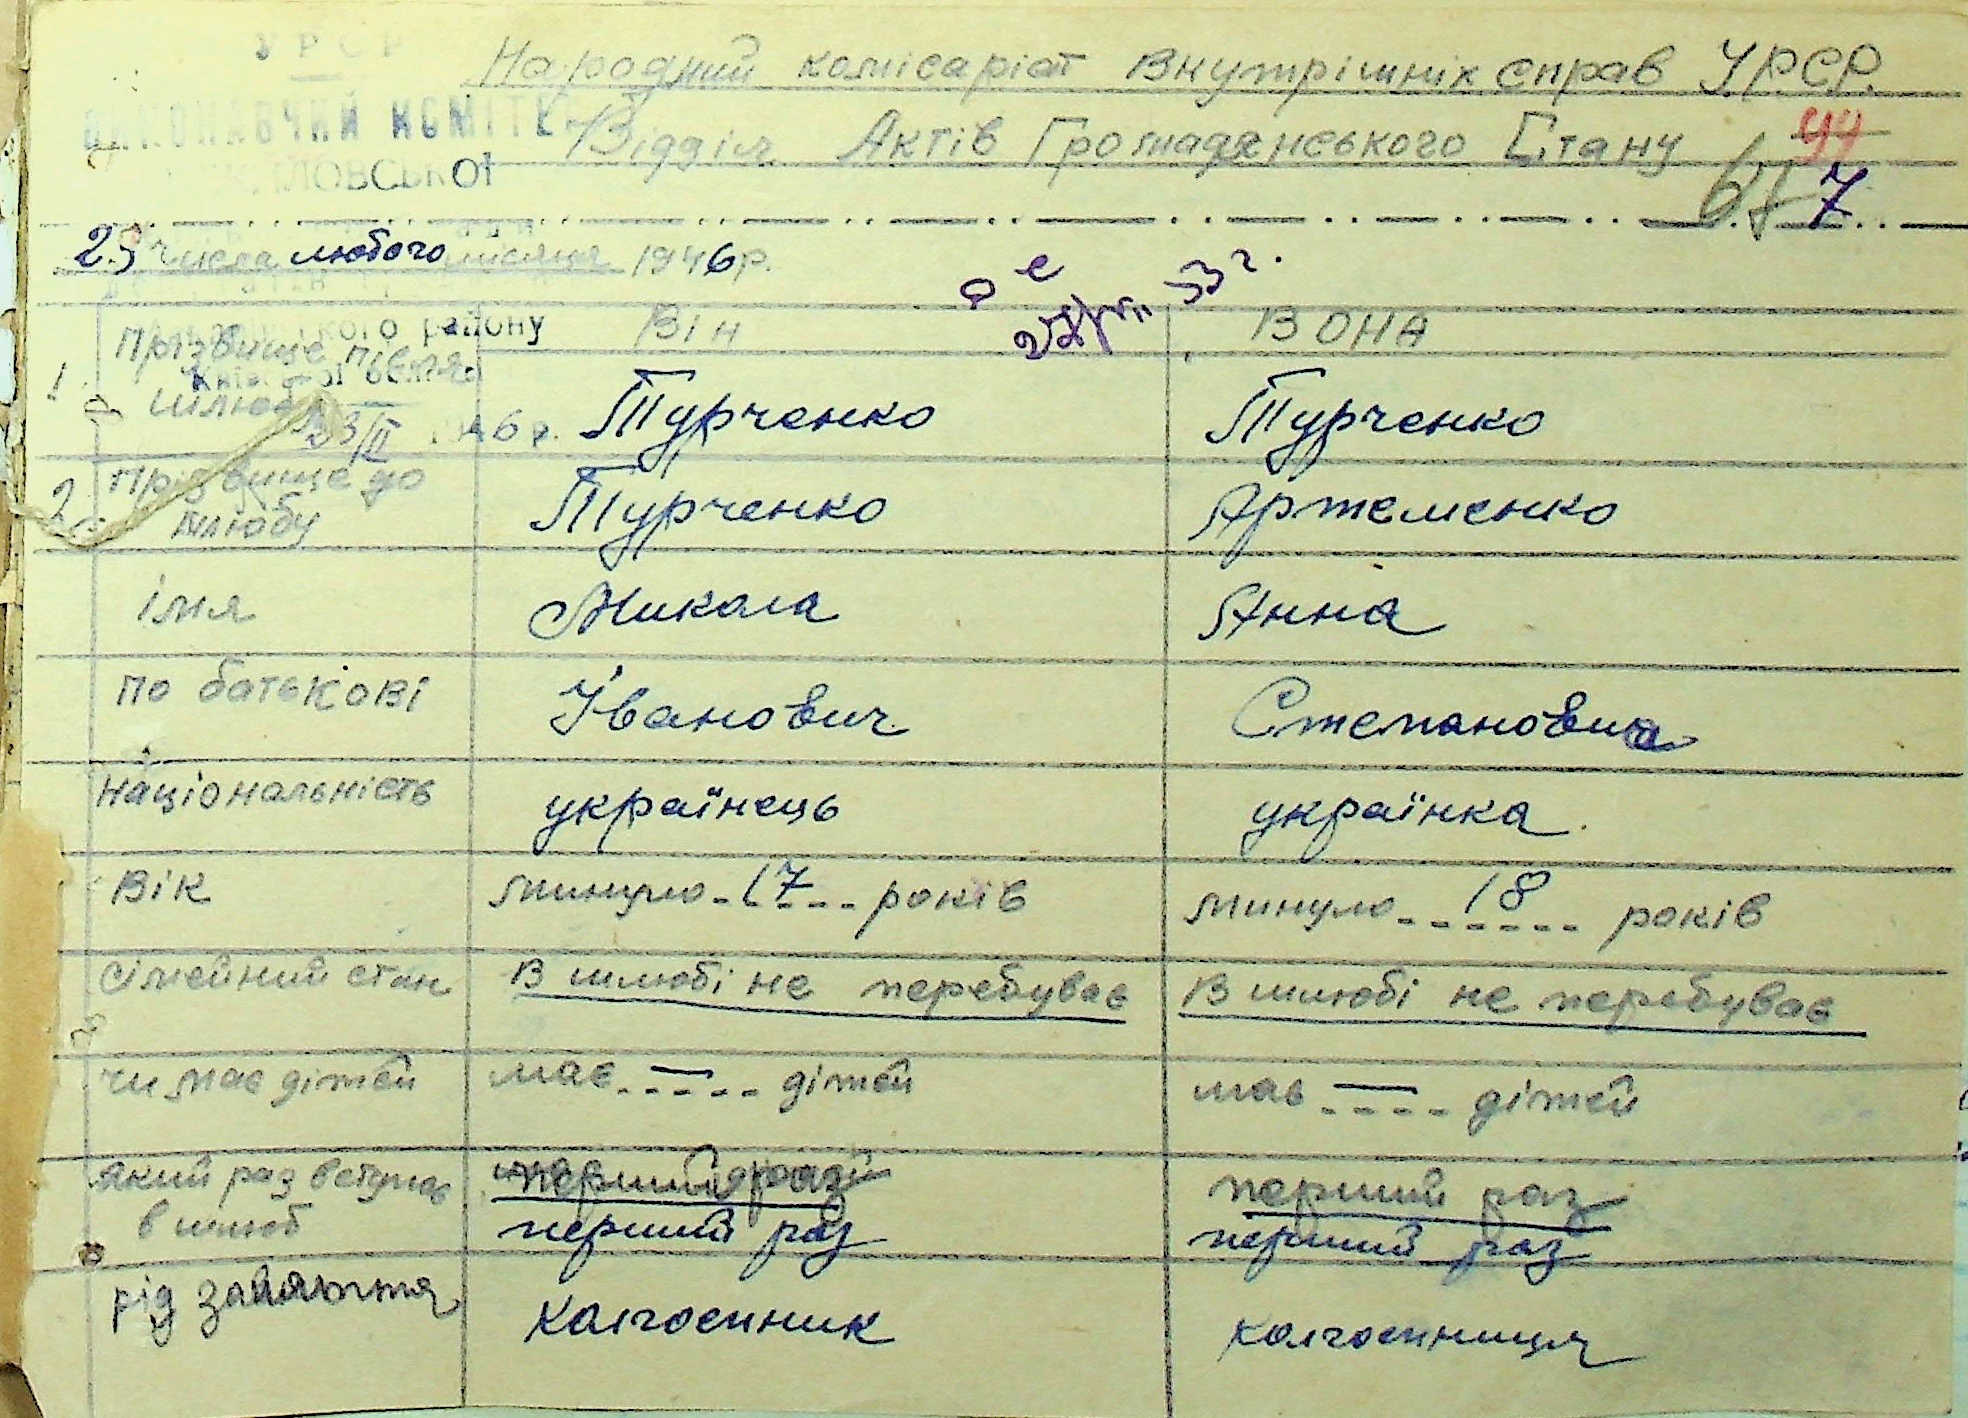 УРСР
Народний комісаріат Внутрішніх справ УРСР.
ВИКОНАВЧИЙ КОМІТЕТ
Відділ Актів Громадянського Стану
99
7
23 числа лютого місяця 1946 р.
району
Він
ВОНА
1. Прізвище після шлюбу
Турченко
Турченко
23/II 1946 р.
2. Прізвище до шлюбу
Турченко
Артеменко
імя
Микола
Анна
по батькові
Іванович
Степановича
Національність
українець
українка.
Вік
минуло 17 років
минуло 18 років
сімейний стан
В шлюбі не перебуває
В шлюбі не перебуває
чи має дітей
має — дітей
має — дітей
який раз вступає
в шлюб
перший раз
перший раз
перший раз
рід заняття
колгоспник
колгоспниця